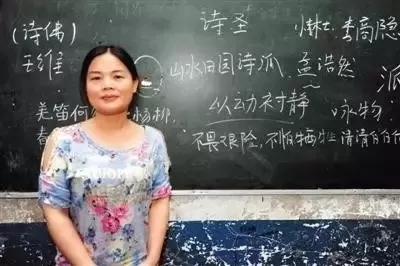 诗圣
(诗佛)
小李杜 李商隐
王维
山水田园诗派 孟浩然
派
羌笛何 杨柳
以动衬静
咏物
春
不畏艰险，不怕牺牲 清清白白